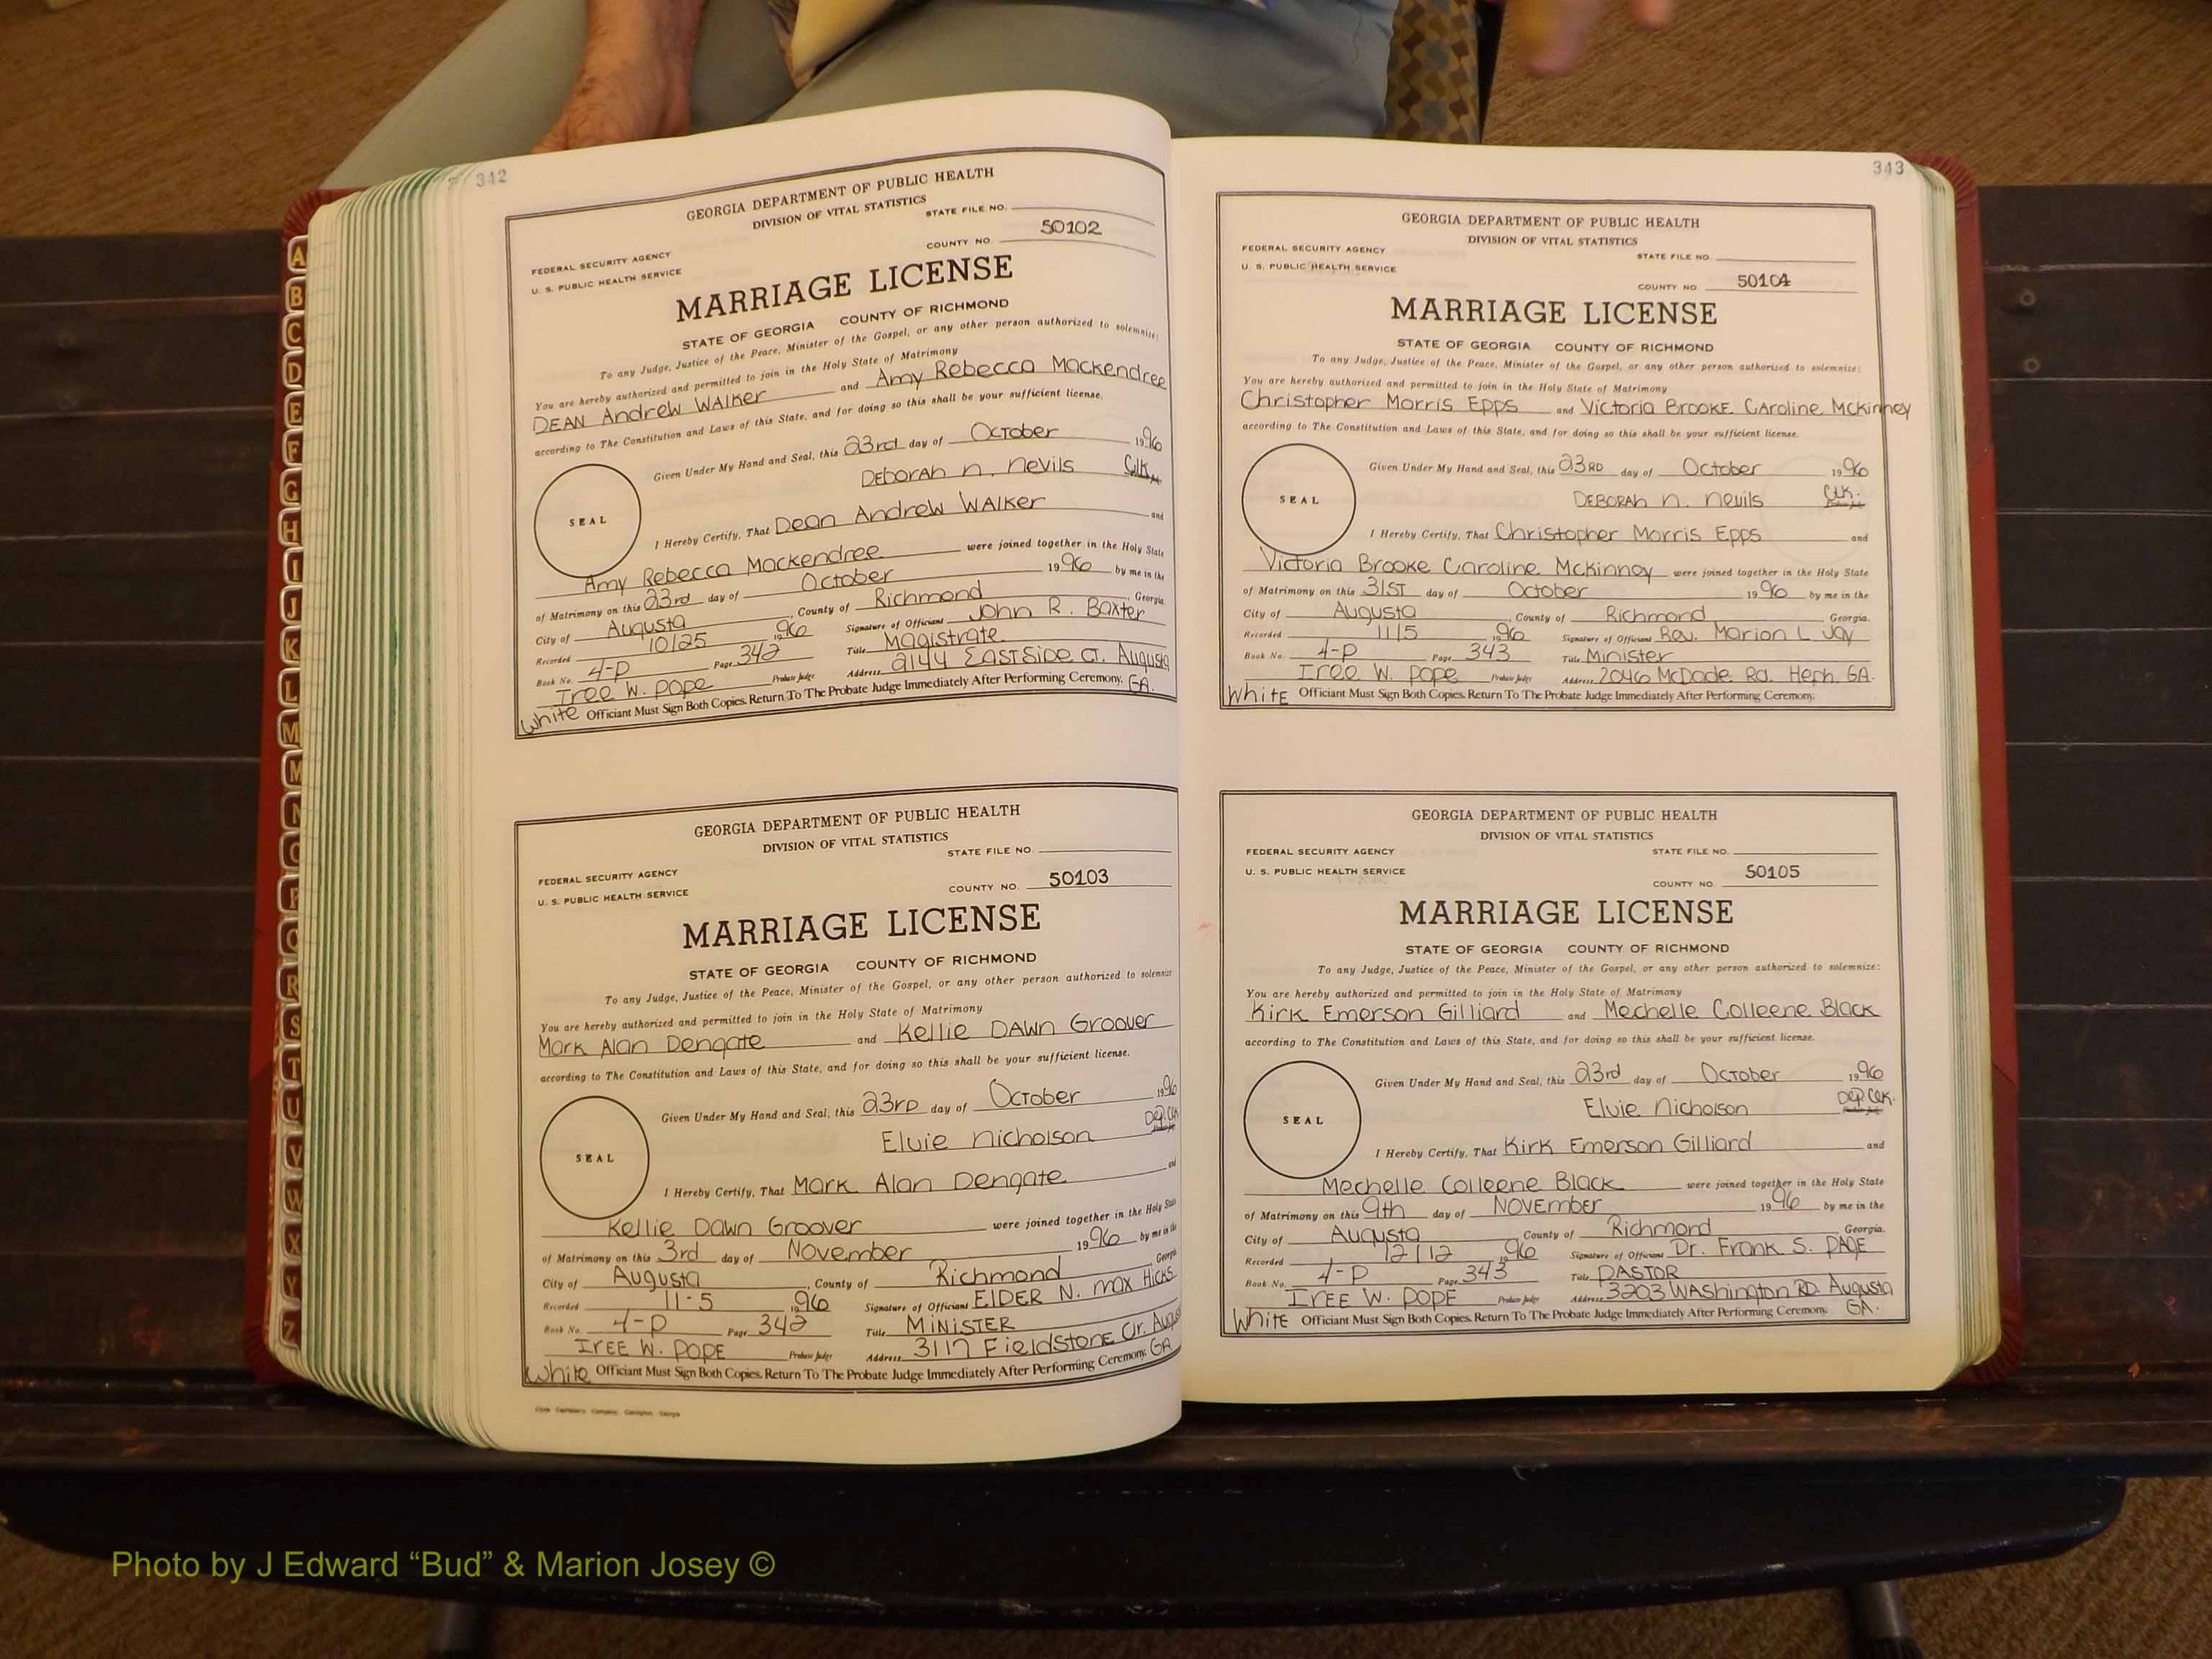 342
GEORGIA DEPARTMENT OF PUBLIC HEALTH
DIVISION OF VITAL STATISTICS
STATE FILE NO.
FEDERAL SECURITY AGENCY
COUNTY NO. 50102
U. S. PUBLIC HEALTH SERVICE
MARRIAGE LICENSE
STATE OF GEORGIA COUNTY OF RICHMOND
To any Judge, Justice of the Peace, Minister of the Gospel, or any other person authorized to solemnize:
You are hereby authorized and permitted to join in the Holy State of Matrimony
DEAN Andrew WALKer and Amy Rebecca Mackendree
according to The Constitution and Laws of this State, and for doing so this shall be your sufficient license.
Given Under My Hand and Seal, this 23rd day of October 1996
DEBORAH n. nevils Clk.
SEAL
I Hereby Certify, That Dean Andrew WALKer and
Amy Rebecca Mackendree were joined together in the Holy State
of Matrimony on this 23rd day of October 1996 by me in the
City of Augusta, County of Richmond, Georgia.
Recorded 10/25 1996 Signature of Officiant John R. Baxter
Book No. 4-P Page 342 Title Magistrate
Iree W. Pope Probate Judge Address 2144 EASTSIDE CT. Augusta GA.
White Officiant Must Sign Both Copies. Return To The Probate Judge Immediately After Performing Ceremony.
GEORGIA DEPARTMENT OF PUBLIC HEALTH
DIVISION OF VITAL STATISTICS
STATE FILE NO.
FEDERAL SECURITY AGENCY
COUNTY NO. 50103
U. S. PUBLIC HEALTH SERVICE
MARRIAGE LICENSE
STATE OF GEORGIA COUNTY OF RICHMOND
To any Judge, Justice of the Peace, Minister of the Gospel, or any other person authorized to solemnize
You are hereby authorized and permitted to join in the Holy State of Matrimony
Mark Alan Dengate and Kellie DAWN Groover
according to The Constitution and Laws of this State, and for doing so this shall be your sufficient license.
Given Under My Hand and Seal, this 23RD day of October 1996
Elvie nicholson Dep. Clk
SEAL
I Hereby Certify, That Mark Alan Dengate and
Kellie Dawn Groover were joined together in the Holy State
of Matrimony on this 3rd day of November 1996 by me in the
City of Augusta, County of Richmond, Georgia
Recorded 11-5 1996 Signature of Officiant ElDER N. max Hicks
Book No. 4-P Page 342 Title MINISTER
IREE W. POPE Probate Judge Address 3117 FieldSTONE Cir. GA
White Officiant Must Sign Both Copies. Return To The Probate Judge Immediately After Performing Ceremony.
343
GEORGIA DEPARTMENT OF PUBLIC HEALTH
DIVISION OF VITAL STATISTICS
FEDERAL SECURITY AGENCY
STATE FILE NO.
U. S. PUBLIC HEALTH SERVICE
COUNTY NO. 50104
MARRIAGE LICENSE
STATE OF GEORGIA COUNTY OF RICHMOND
To any Judge, Justice of the Peace, Minister of the Gospel, or any other person authorized to solemnize:
You are hereby authorized and permitted to join in the Holy State of Matrimony
Christopher Morris Epps and Victoria BROOKE CAroline McKinney
according to The Constitution and Laws of this State, and for doing so this shall be your sufficient license.
Given Under My Hand and Seal, this 23RD day of October 1996
DEBORAH n. nevils CLK.
SEAL
I Hereby Certify, That Christopher Morris Epps and
Victoria Brooke Caroline McKinney were joined together in the Holy State
of Matrimony on this 31ST day of October 1996 by me in the
City of Augusta, County of Richmond, Georgia.
Recorded 11/5 1996 Signature of Officiant Rev. Marion L Jay
Book No. 4-P Page 343 Title Minister
Iree W. Pope Probate Judge Address 2046 McDade Rd. Heph. GA.
White Officiant Must Sign Both Copies. Return To The Probate Judge Immediately After Performing Ceremony.
GEORGIA DEPARTMENT OF PUBLIC HEALTH
DIVISION OF VITAL STATISTICS
FEDERAL SECURITY AGENCY
STATE FILE NO.
U. S. PUBLIC HEALTH SERVICE
COUNTY NO. 50105
MARRIAGE LICENSE
STATE OF GEORGIA COUNTY OF RICHMOND
To any Judge, Justice of the Peace, Minister of the Gospel, or any other person authorized to solemnize:
You are hereby authorized and permitted to join in the Holy State of Matrimony
Kirk Emerson Gilliard and Mechelle Colleene Black
according to The Constitution and Laws of this State, and for doing so this shall be your sufficient license.
Given Under My Hand and Seal, this 23rd day of October 1996
Elvie Nicholson Dep Clk.
SEAL
I Hereby Certify, That Kirk Emerson Gilliard and
Mechelle Colleene Black were joined together in the Holy State
of Matrimony on this 9th day of NOVEMBER 1996 by me in the
City of Augusta County of Richmond Georgia.
Recorded 12/12 1996 Signature of Officiant Dr. Frank S. PAGE
Book No. 4-P Page 343 Title PASTOR
IREE W. POPE Probate Judge Address 3203 WAShington RD. Augusta GA.
White Officiant Must Sign Both Copies. Return To The Probate Judge Immediately After Performing Ceremony.
A
B
C
D
E
F
G
H
I
J
K
L
M
M
N
O
P
Q
R
S
T
U
V
W
X
Y
Z
Photo by J Edward “Bud” & Marion Josey ©